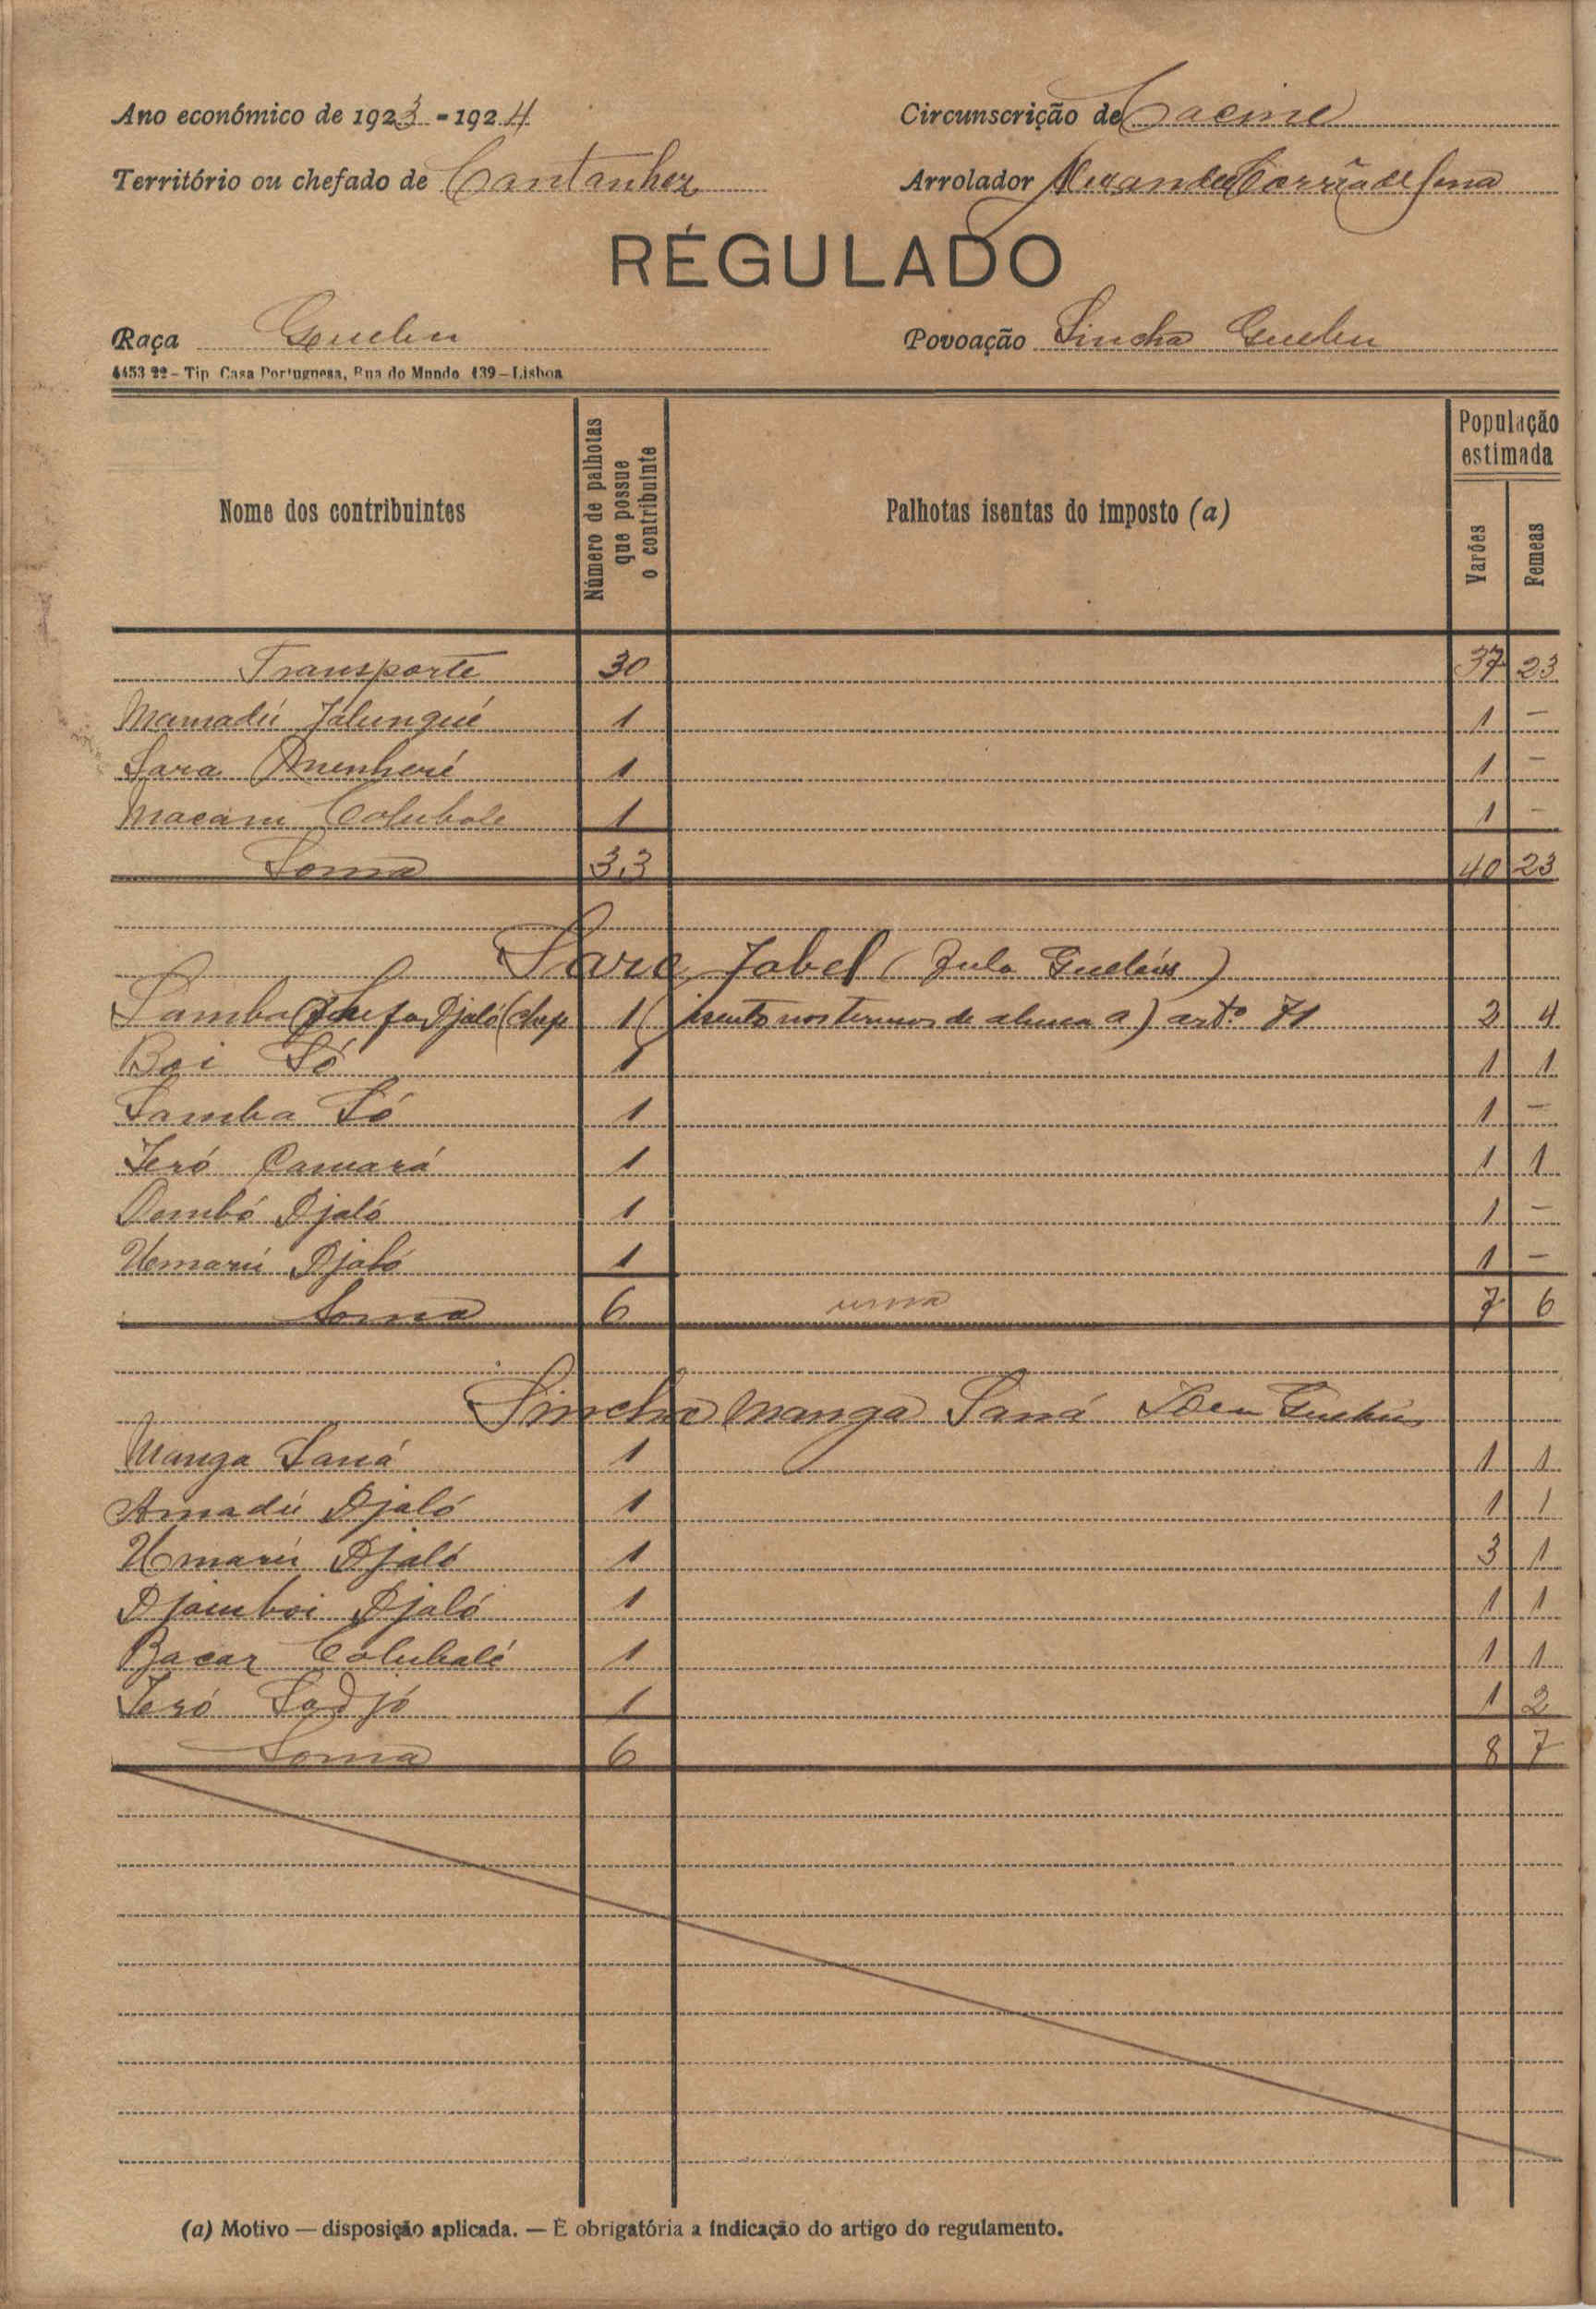 Ano económico de 1923-1924 Circunscrição de Cacine
Território ou chefado de Cantanhez Arrolador Corrêa de Sena
RÉGULADO
Raça Guelen Povoação Sincha Guelen
4453 22 – Tip. Casa Portuguesa, Rua do Mundo 139 – Lisboa
Nome dos contribuintes Número de palhotas que possue o contribuinte Palhotas isentas do imposto (a) População estimada Varões Femeas
Transporte 30 37 23
Mamadú Jalunqué 1 1 –
Sara 1 1 –
Macani Colubale 1 1 –
Soma 33 40 23
Sare Jabel (Fula)
Samba Djaló (chefe 1 (isento nos termos de alinea a) artº 71 2 4
Boi Só 1 1 1
Samba Só 1 1 –
Teró Camará 1 1 1
Dembó Djaló 1 1 –
Umarú Djaló 1 1 –
Soma 6 uma 7 6
Sincha Manga Saná
Manga Saná 1 1 1
Amadú Djaló 1 1 1
Umarú Djaló 1 3 1
Djamboi Djaló 1 1 1
Bacar Colubalé 1 1 1
Teró Sadjó 1 1 2
Soma 6 8 7
(a) Motivo — disposição aplicada. — É obrigatória a indicação do artigo do regulamento.